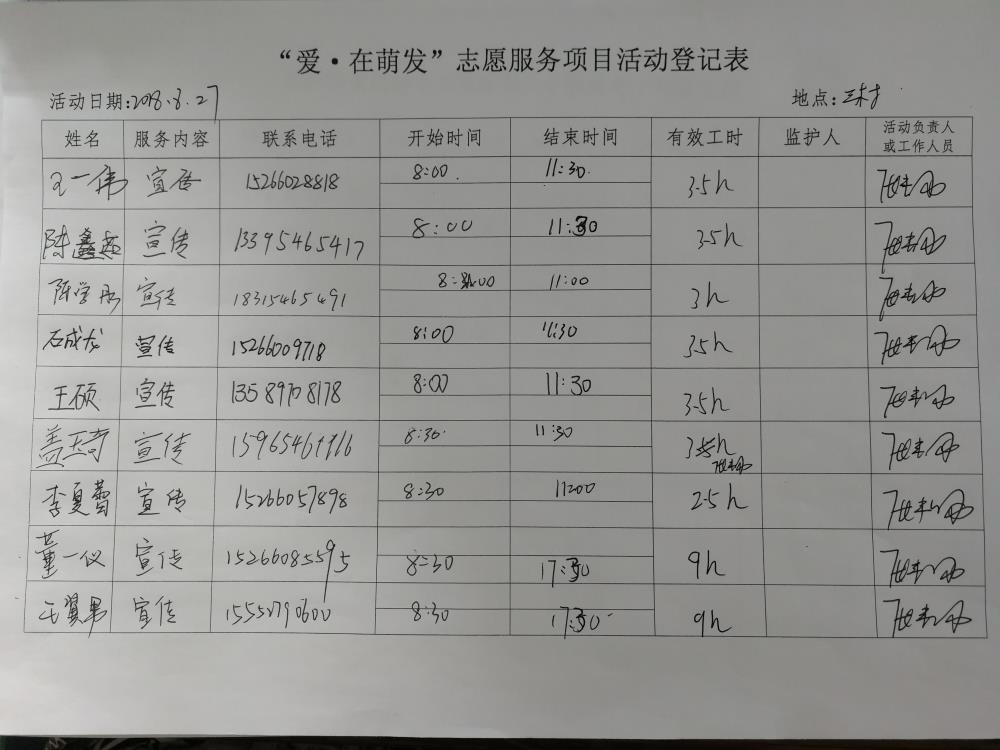 “爱·在萌发”志愿服务项目活动登记表
活动日期:2018.8.27 地点:三村
姓名 服务内容 联系电话 开始时间 结束时间 有效工时 监护人 活动负责人或工作人员
王一伟 宣传 15266028818 8:00 11:30 3.5h
陈鑫 宣传 13395465417 8:00 11:30 3.5h
陈学彤 宣传 18315465491 8:00 11:00 3h
石成龙 宣传 15266009718 8:00 11:30 3.5h
王硕 宣传 13589708178 8:00 11:30 3.5h
盖玉奇 宣传 8:30 11:30
李夏蕾 宣传 15266057898 8:30 11:00 2.5h
董一仪 宣传 15266085595 8:30 17:30 9h
王翼男 宣传 15550790600 8:30 17:30 9h